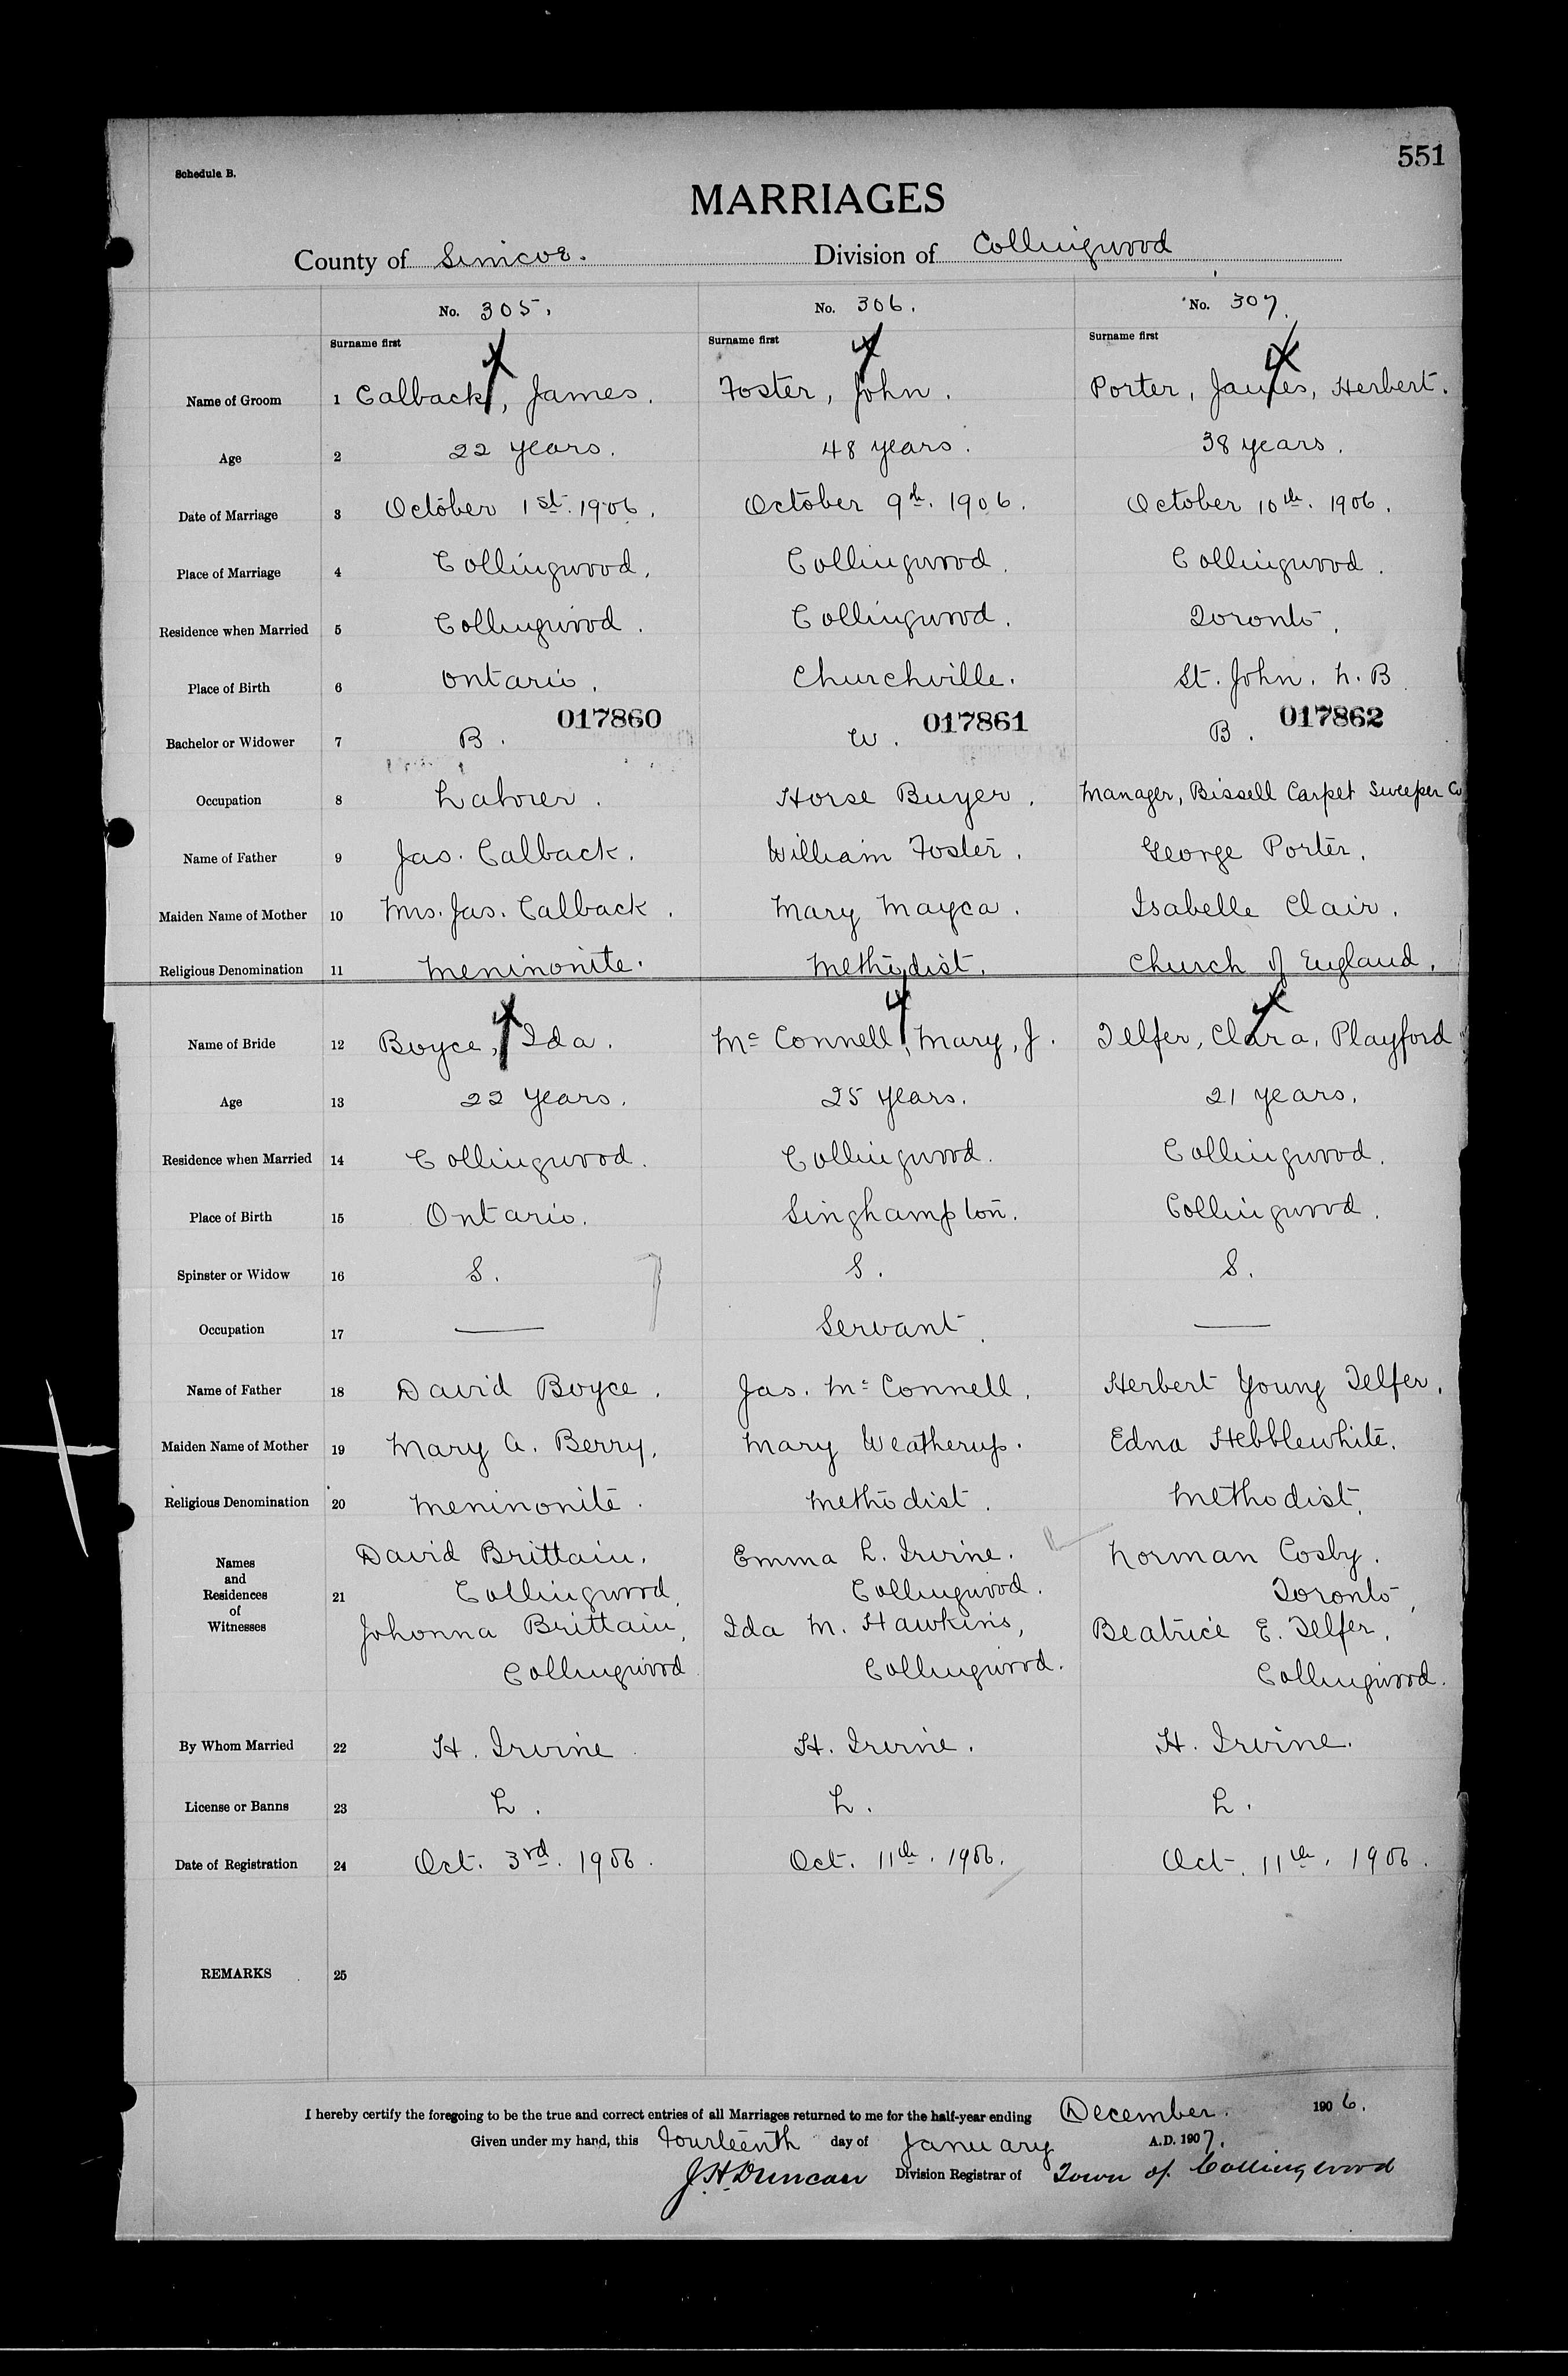 551
Schedule B.
MARRIAGES
County of Simcoe. Division of Collingwood
No. 305. No. 306. No. 307.
Surname first Surname first Surname first
Name of Groom 1 Calback, James. Foster, John. Porter, James, Herbert.
Age 2 22 years. 48 years. 38 years.
Date of Marriage 3 October 1st. 1906. October 9th. 1906. October 10th. 1906.
Place of Marriage 4 Collingwood. Collingwood. Collingwood.
Residence when Married 5 Collingwood. Collingwood. Toronto.
Place of Birth 6 Ontario. Churchville. St. John. N. B
017860 017861 017862
Bachelor or Widower 7 B. W. B.
Occupation 8 Laborer. Horse Buyer. Manager, Bissell Carpet Sweeper Co
Name of Father 9 Jas. Calback. William Foster. George Porter.
Maiden Name of Mother 10 Mrs. Jas. Calback. Mary Mayca. Isabelle Clair.
Religious Denomination 11 Meninonite. Methodist. Church of England.
Name of Bride 12 Boyce, Ida. Mc Connell, Mary, J. Telfer, Clara, Playford
Age 13 22 years. 25 years. 21 years.
Residence when Married 14 Collingwood. Collingwood. Collingwood.
Place of Birth 15 Ontario. Singhampton. Collingwood.
Spinster or Widow 16 S. S. S.
Occupation 17 — Servant. —
Name of Father 18 David Boyce. Jas. Mc Connell. Herbert Young Telfer.
Maiden Name of Mother 19 Mary A. Berry. Mary Weatherup. Edna Hebblewhite.
Religious Denomination 20 Meninonite. Methodist. Methodist.
Names and Residences of Witnesses 21
David Brittain. Emma L. Irvine. Norman Cosby.
Collingwood, Collingwood. Toronto,
Johonna Brittain, Ida M. Hawkins, Beatrice E. Telfer,
Collingwood Collingwood. Collingwood.
By Whom Married 22 H. Irvine H. Irvine. H. Irvine.
License or Banns 23 L. L. L.
Date of Registration 24 Oct. 3rd. 1906. Oct. 11th. 1906. Oct. 11th. 1906.
REMARKS 25
I hereby certify the foregoing to be the true and correct entries of all Marriages returned to me for the half-year ending December. 1906.
Given under my hand, this Fourteenth day of January A.D. 1907.
J. H. Duncan Division Registrar of Town of Collingwood